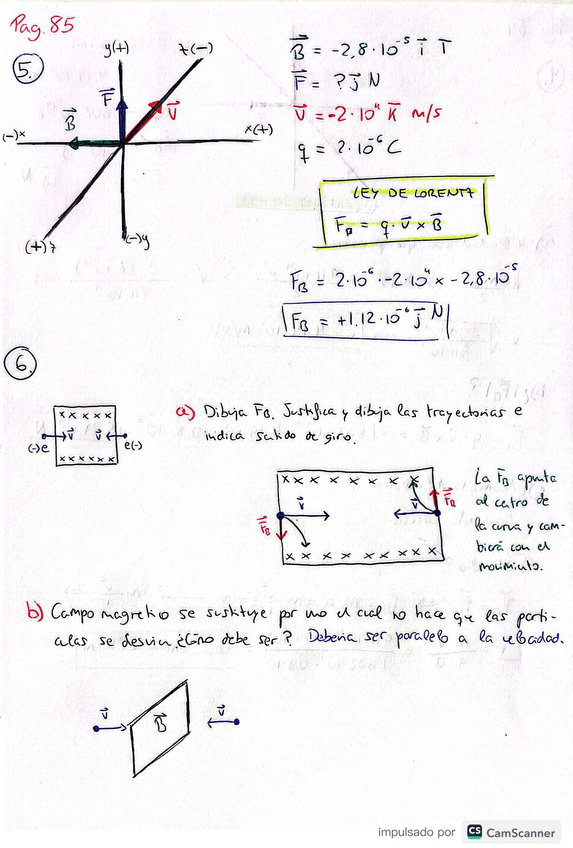 Pag. 85
5.
y(+)
z(-)
F
V
B
(-)x
x(+)
(+)z
(-)y
B = -2,8·10⁻⁵ i T
F = ? j N
V = -2·10⁴ K m/s
q = 2·10⁻⁶ C
LEY DE LORENTZ
F_B = q·v x B
F_B = 2·10⁻⁶·-2·10⁴ x -2,8·10⁻⁵
F_B = +1,12·10⁻⁶ j N
6.
x x x x x
(-)e v v e(-)
x x x x x
a) Dibuja F_B. Justifica y dibuja las trayectorias e
indica sentido de giro.
x x x x x x x x
v v F_B
F_B
x x x x x x x x
La F_B apunta
al centro de
la curva y cam-
biará con el
movimiento.
b) Campo magnetico se sustituye por uno el cual no hace que las parti-
culas se desvien ¿Cómo debe ser? Deberia ser paralelo a la velocidad.
v B v
impulsado por CS CamScanner